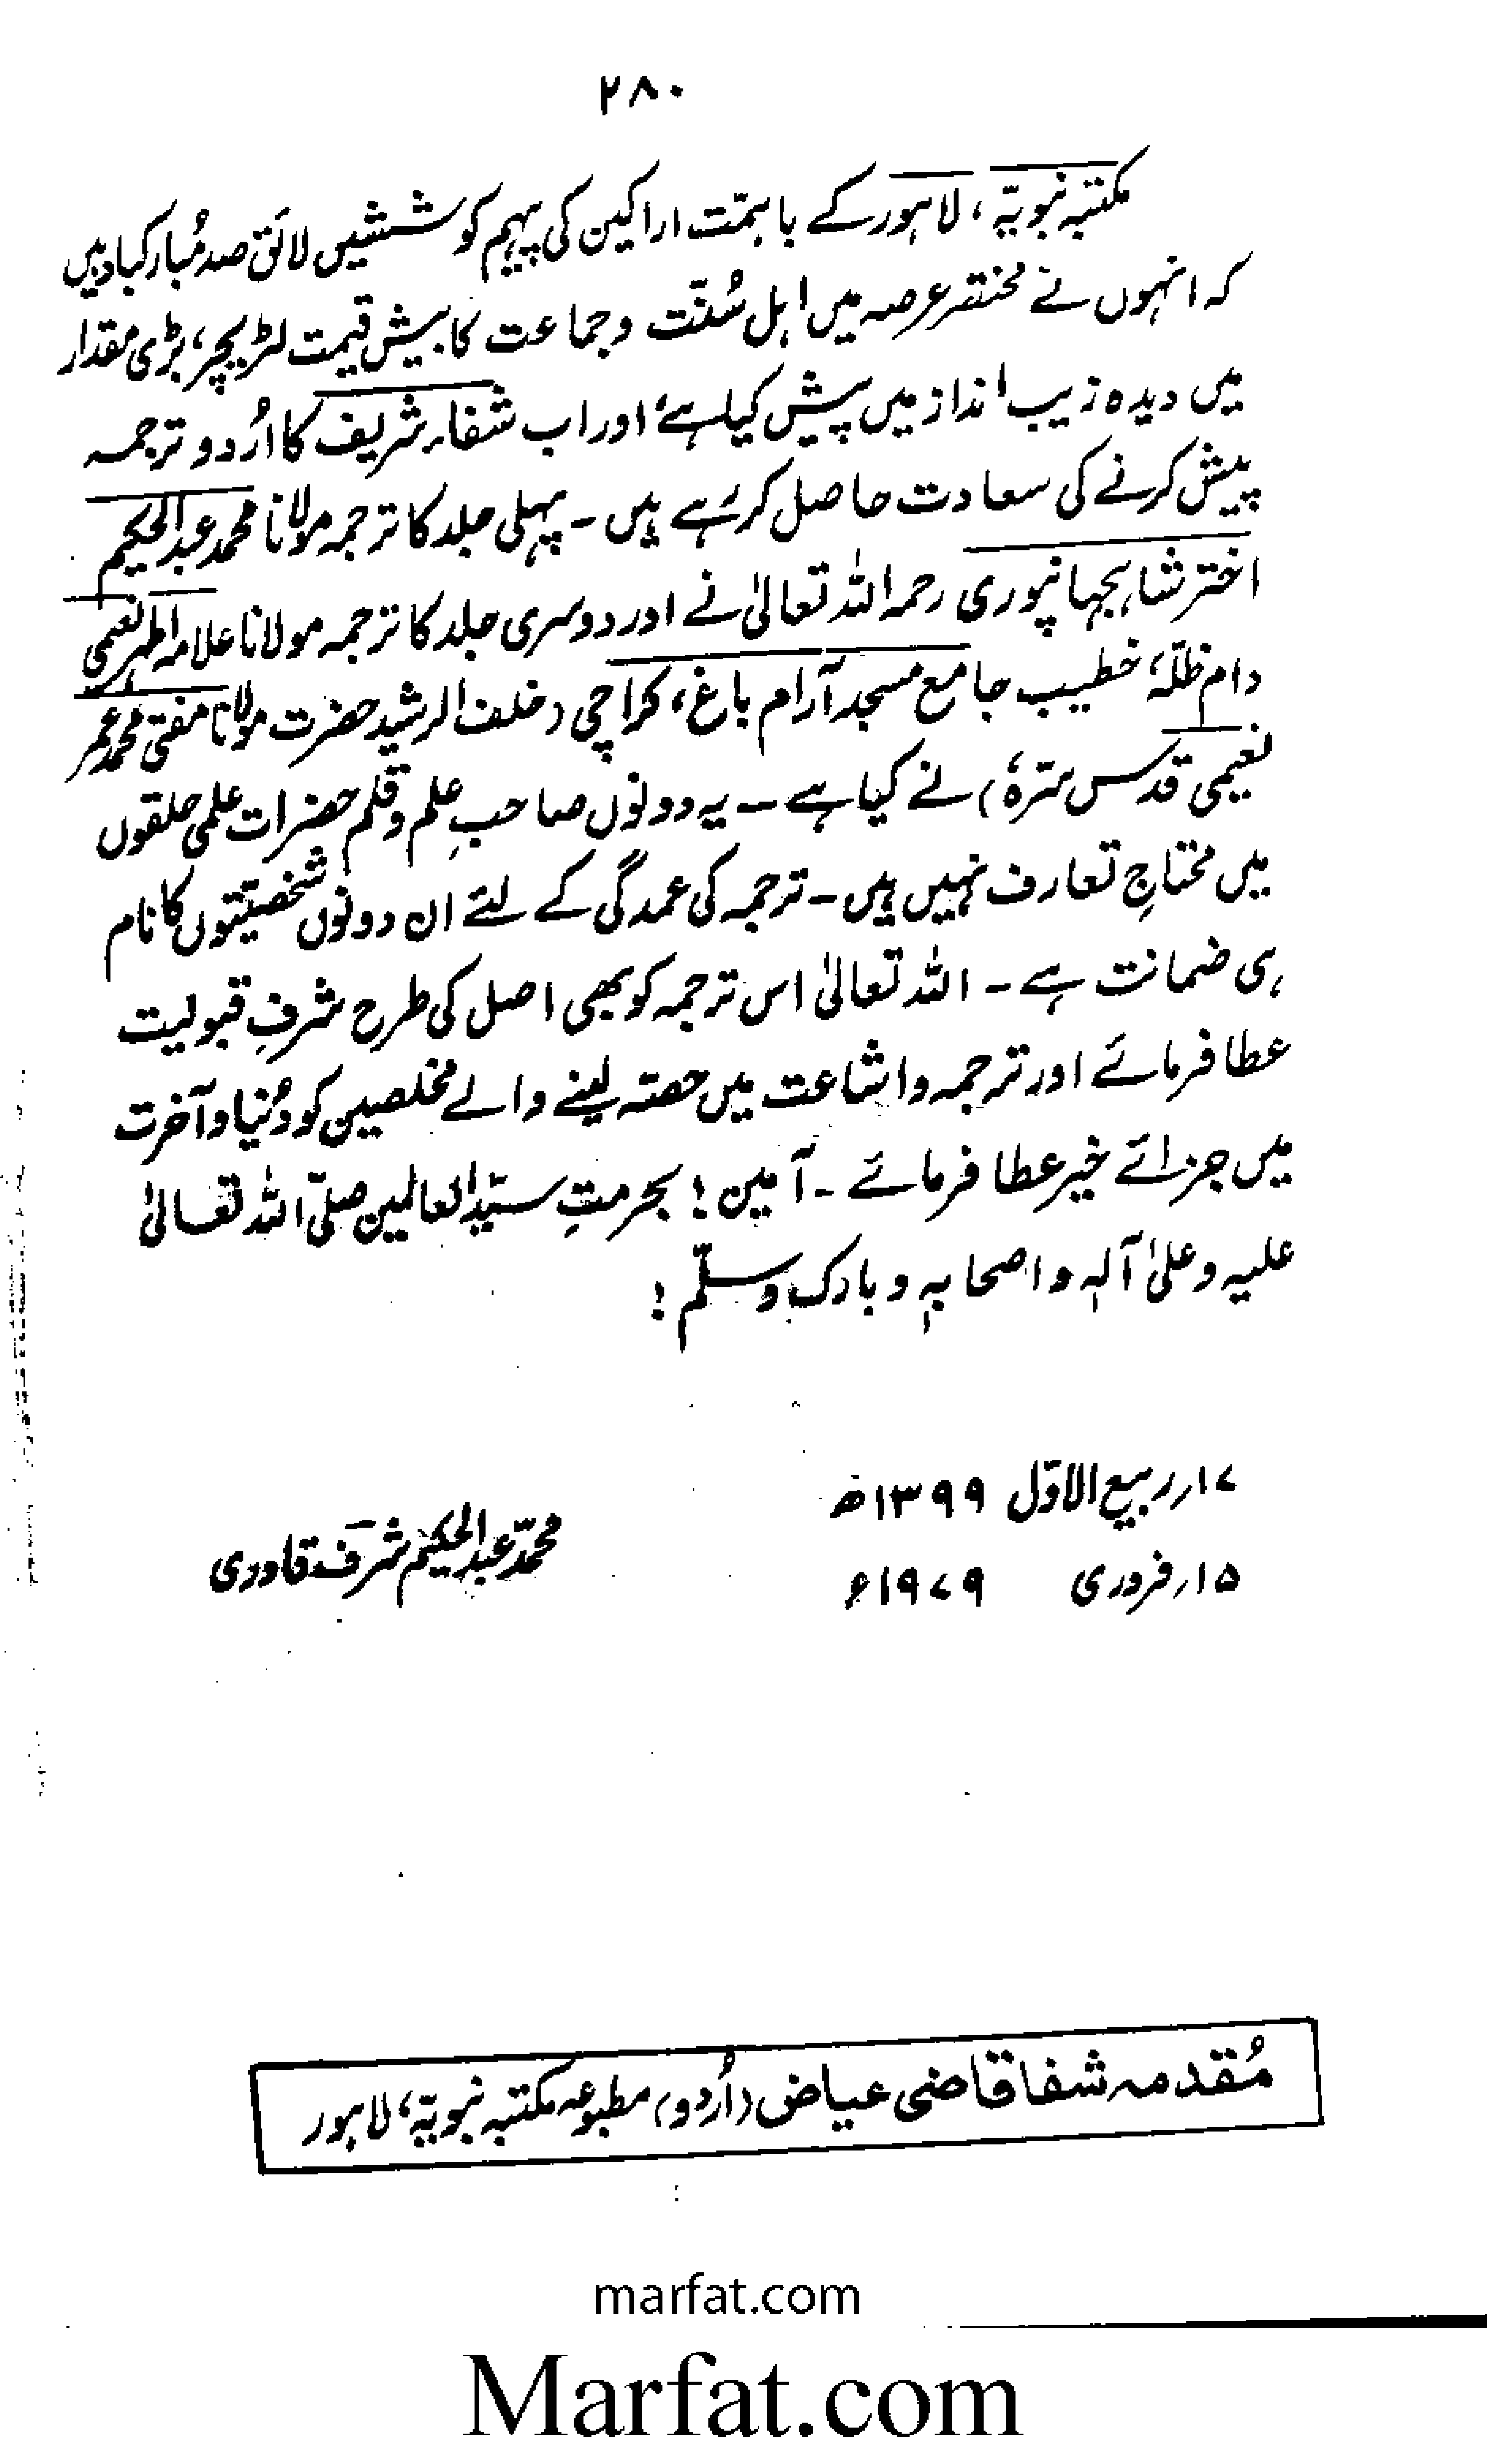 ۲۸۰
مکتبہ نبویّہ، لاہور کے باہمّت اراکین کی پہیم کوششیں لائق صد مُبارکباد ہیں
کہ انہوں نے مختصر عرصہ میں اہل سُنّت وجماعت کا بیش قیمت لٹریچر، بڑی مقدار
میں دیدہ زیب انداز میں پیش کیا ہے، اور اب شفاء شریف کا اُردو ترجمہ
پیش کرنے کی سعادت حاصل کر رہے ہیں ۔ پہلی جلد کا ترجمہ مولانا محمد عبدالحکیم
اختر شاہجہانپوری رحمہ اللہ تعالیٰ نے اور دوسری جلد کا ترجمہ مولانا علامہ اطہر نعیمی
دام ظلّہ، خطیب جامع مسجد آرام باغ، کراچی (خلف الرشید حضرت مولانا مفتی محمد عمر
نعیمی قدس سرّہٗ) نے کیا ہے ۔۔ یہ دونوں صاحبِ علم و قلم حضرات علمی حلقوں
میں محتاجِ تعارف نہیں ہیں ۔ ترجمہ کی عمدگی کے لئے ان دونوں شخصیّتوں کا نام
ہی ضمانت ہے ۔ اللہ تعالیٰ اس ترجمہ کو بھی اصل کی طرح شرفِ قبولیت
عطا فرمائے اور ترجمہ و اشاعت میں حصّہ لینے والے مخلصین کو دُنیا و آخرت
میں جزائے خیر عطا فرمائے ۔ آمین! بحرمتِ سیّد العالمین صلّی اللہ تعالیٰ
علیہ وعلیٰ آلہٖ واصحابہٖ وبارک وسلّم!
۱۷ ربیع الاوّل ۱۳۹۹ھ
۱۵ فروری ۱۹۷۹ء
محمّد عبدالحکیم شرف قادری
مُقدمہ شفا قاضی عیاض (اُردو) مطبوعہ مکتبہ نبویّہ، لاہور
marfat.com
Marfat.com